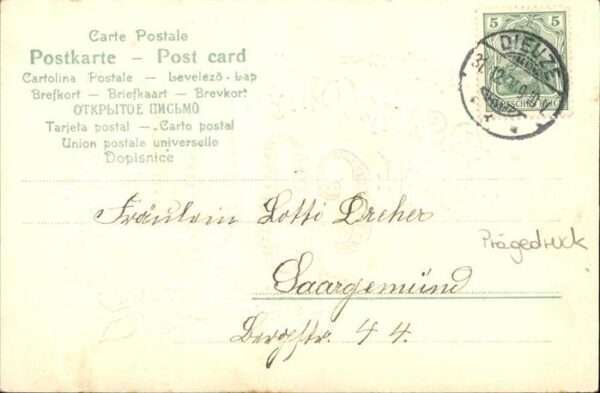 Carte Postale
Postkarte – Post card
Cartolina Postale – Levelező-Lap
Brefkort – Briefkaart – Brevkort
ОТКРЫТОЕ ПИСЬМО
Tarjeta postal – Carto postal
Union postale universelle
Dopisnice
5 5
DIEUZE
Fräulein Lotti Dreher
Prägedruck
Saargemünd
Bergstr. 44.